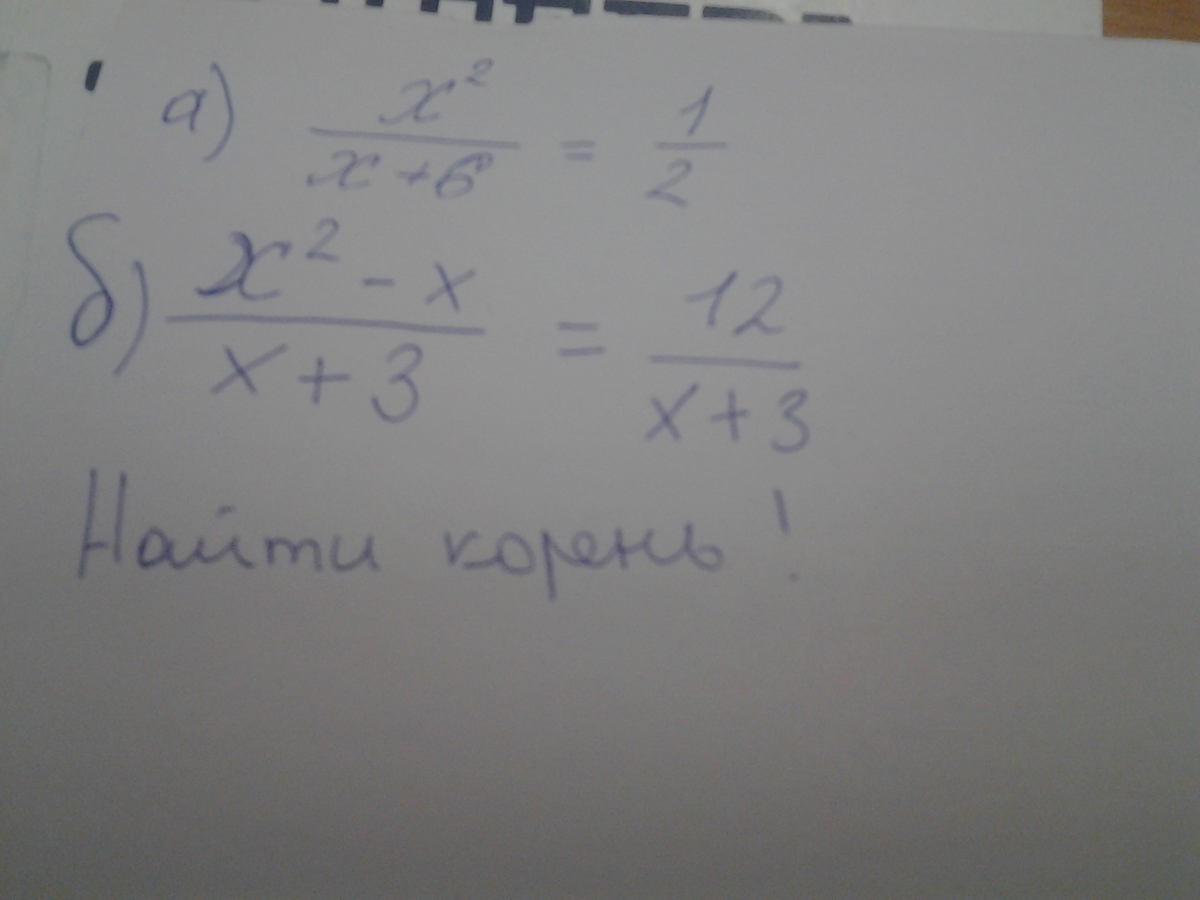 а) x²/(x+6) = 1/2
б) (x² - x)/(x+3) = 12/(x+3)
Найти корень!